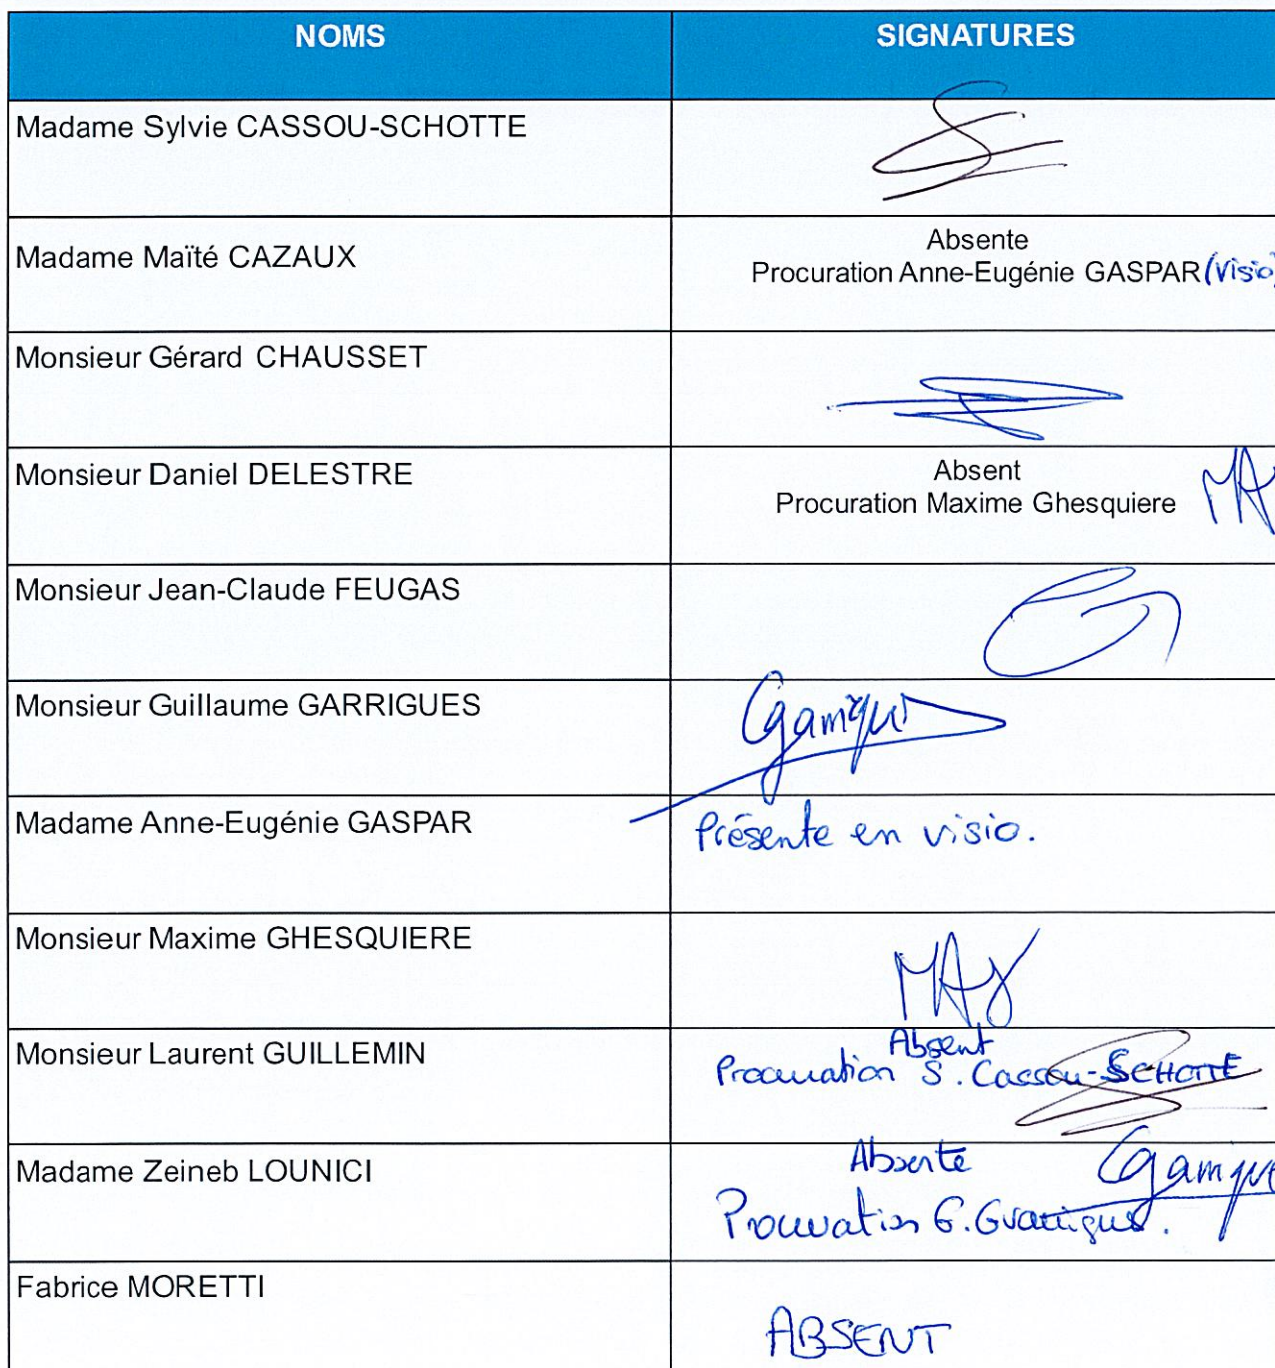 NOMS SIGNATURES
Madame Sylvie CASSOU-SCHOTTE
Madame Maïté CAZAUX
Absente
Procuration Anne-Eugénie GASPAR (Visio)
Monsieur Gérard CHAUSSET
Monsieur Daniel DELESTRE
Absent
Procuration Maxime Ghesquiere
Monsieur Jean-Claude FEUGAS
Monsieur Guillaume GARRIGUES
Madame Anne-Eugénie GASPAR
Présente en visio.
Monsieur Maxime GHESQUIERE
Monsieur Laurent GUILLEMIN
Absent
Procuration S. Cassou-SCHOTTE
Madame Zeineb LOUNICI
Absente
Procuration G.
Fabrice MORETTI
ABSENT